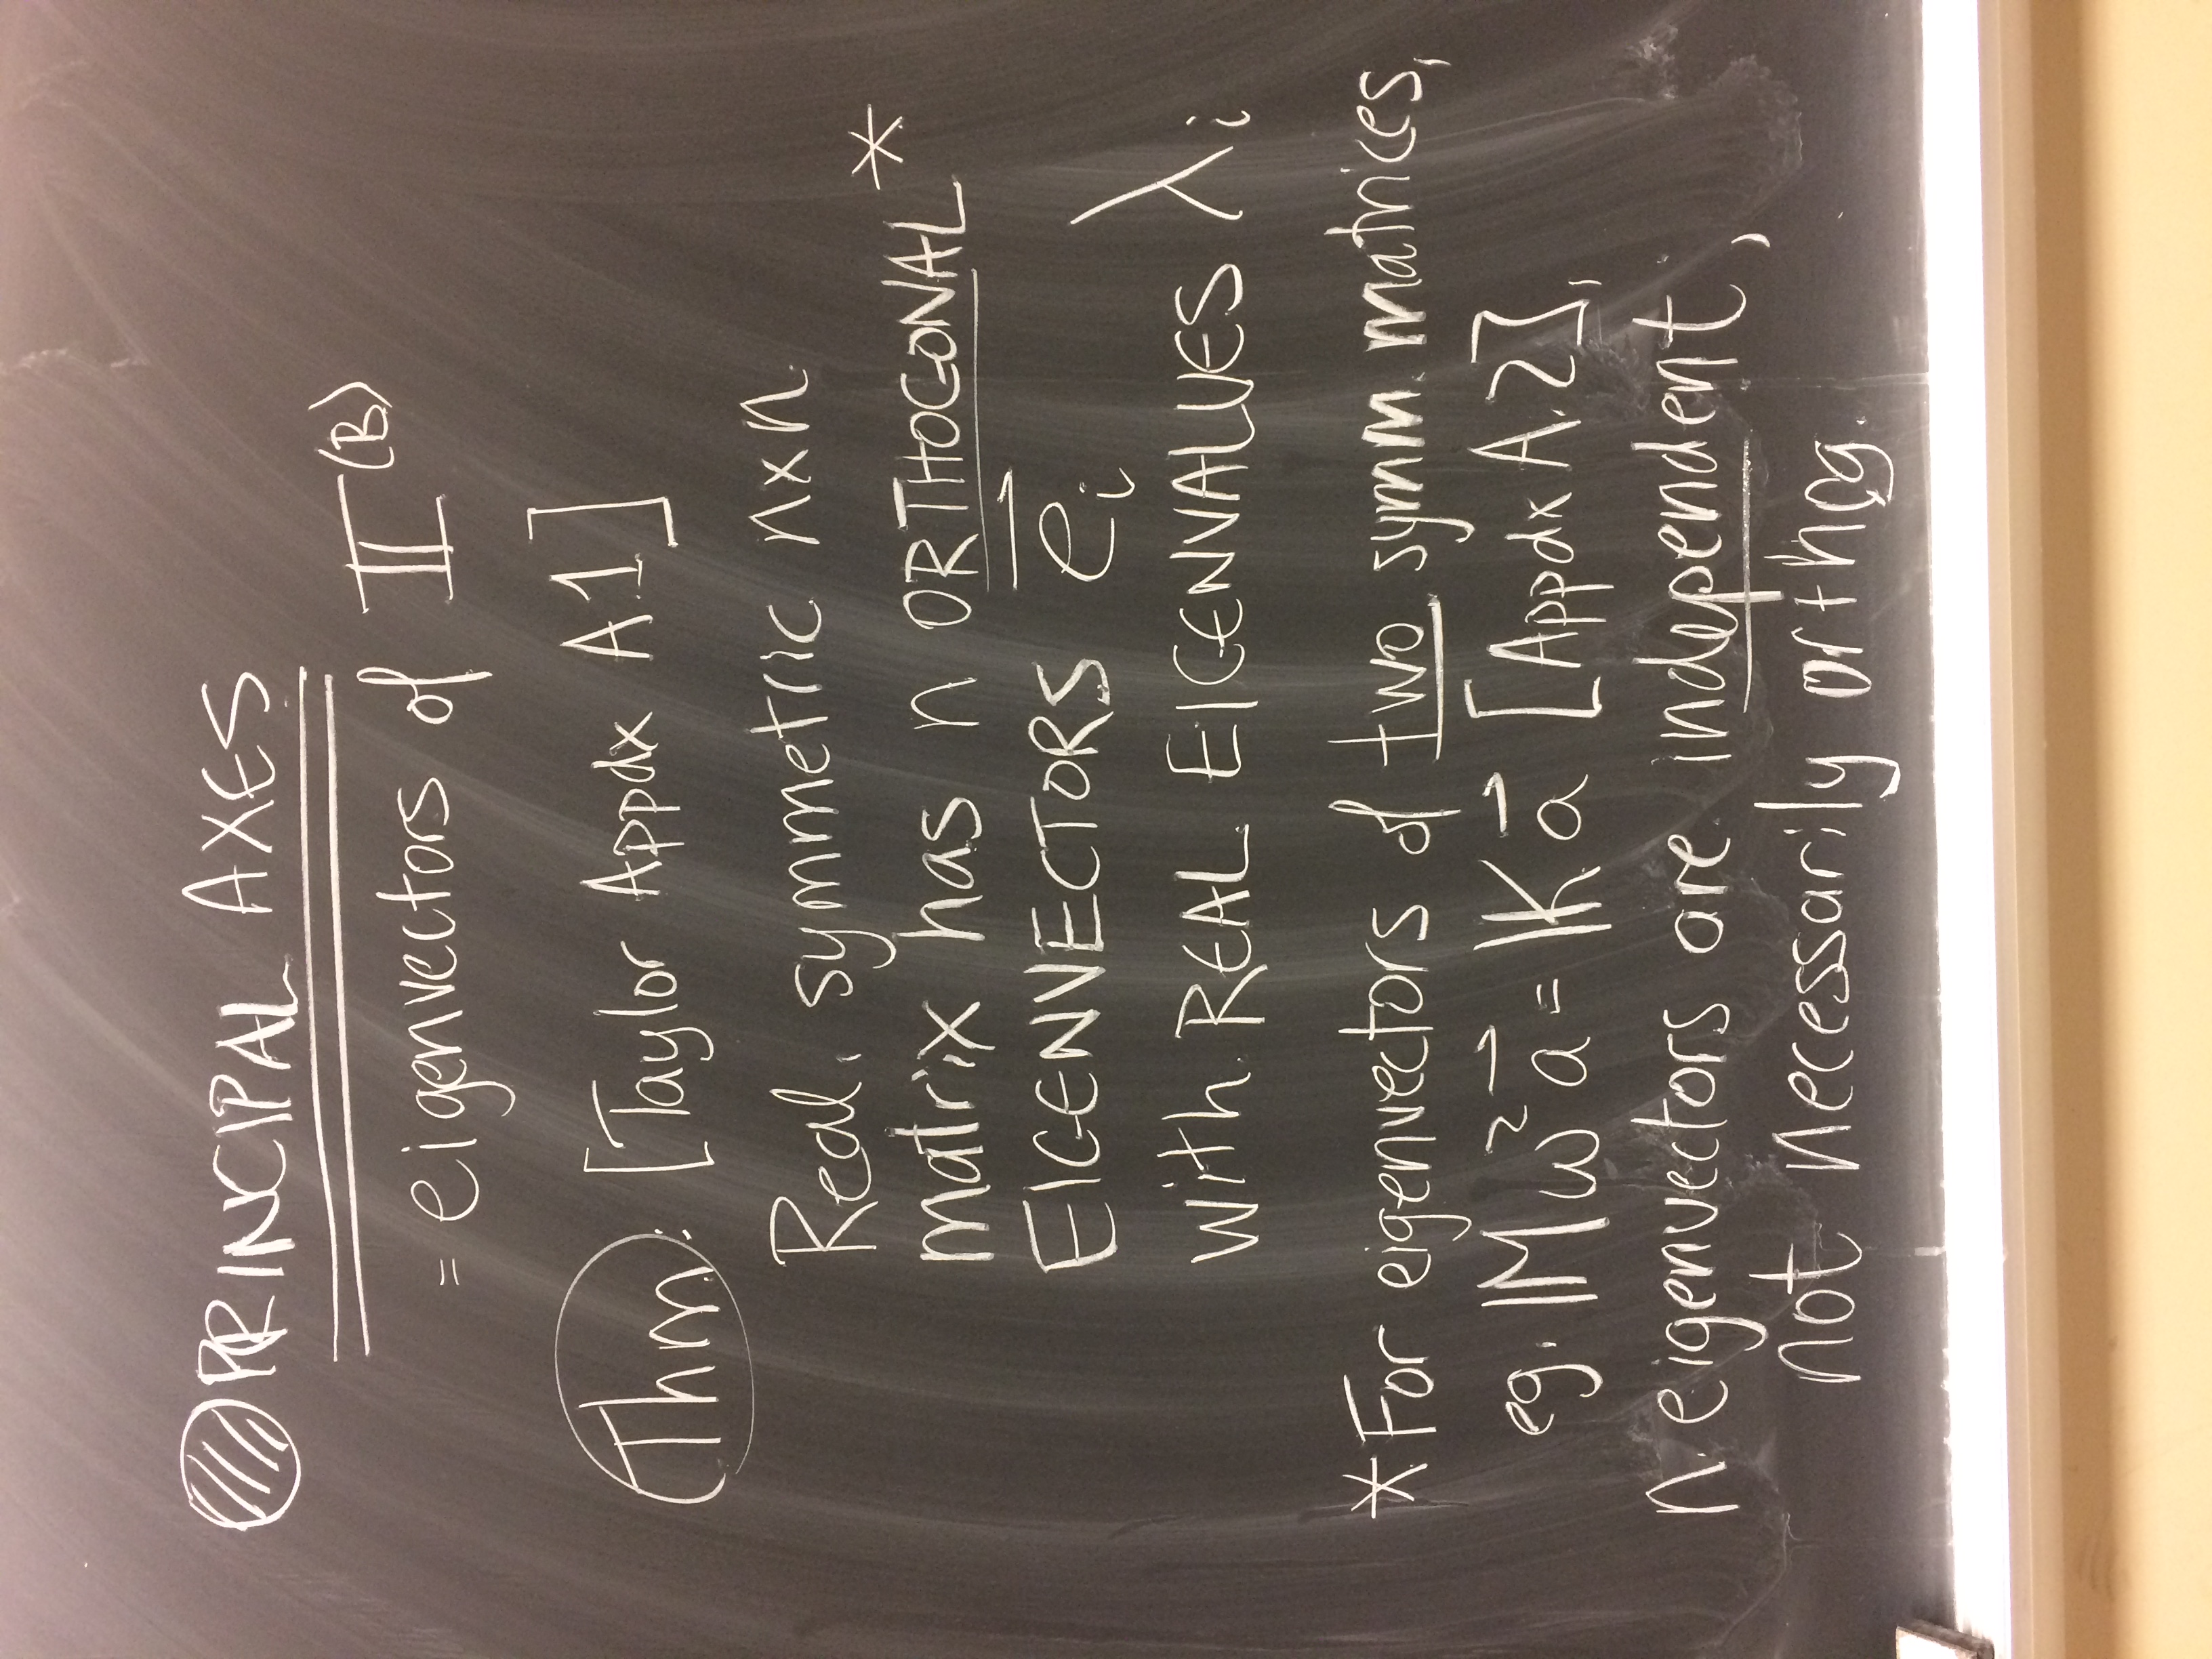 PRINCIPAL AXES
= eigenvectors of II^(B)
Thm: [Taylor Appdx A1]
Real, symmetric n×n
matrix has n ORTHOGONAL*
EIGENVECTORS e⃗ᵢ
with REAL EIGENVALUES λᵢ
*For eigenvectors of two symm. matrices,
eg. 𝕄 ω² a⃗ = 𝕂 a⃗ [Appdx A.2],
n eigenvectors are independent,
not necessarily orthog.